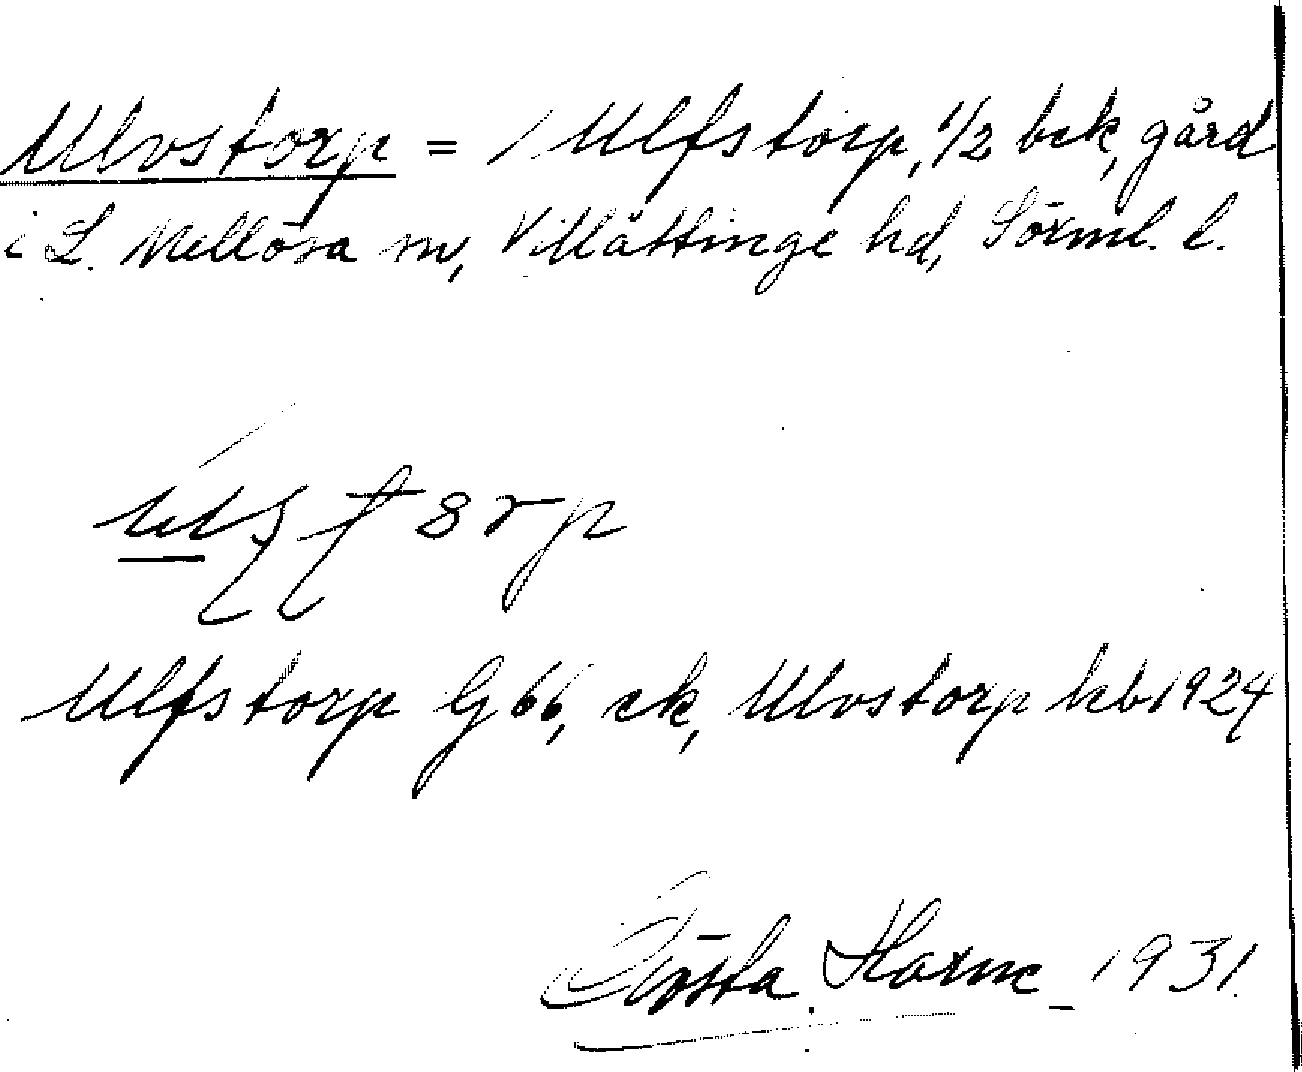 Ulvstorp = 1 Ulfstorp, 1/2 bek, gård
i L. Mellösa sn, Villåttinge hd, Sörml. l.
Ulfstorp G 66, ek, Ulvstorp kb 1924
Gösta Harne 1931.